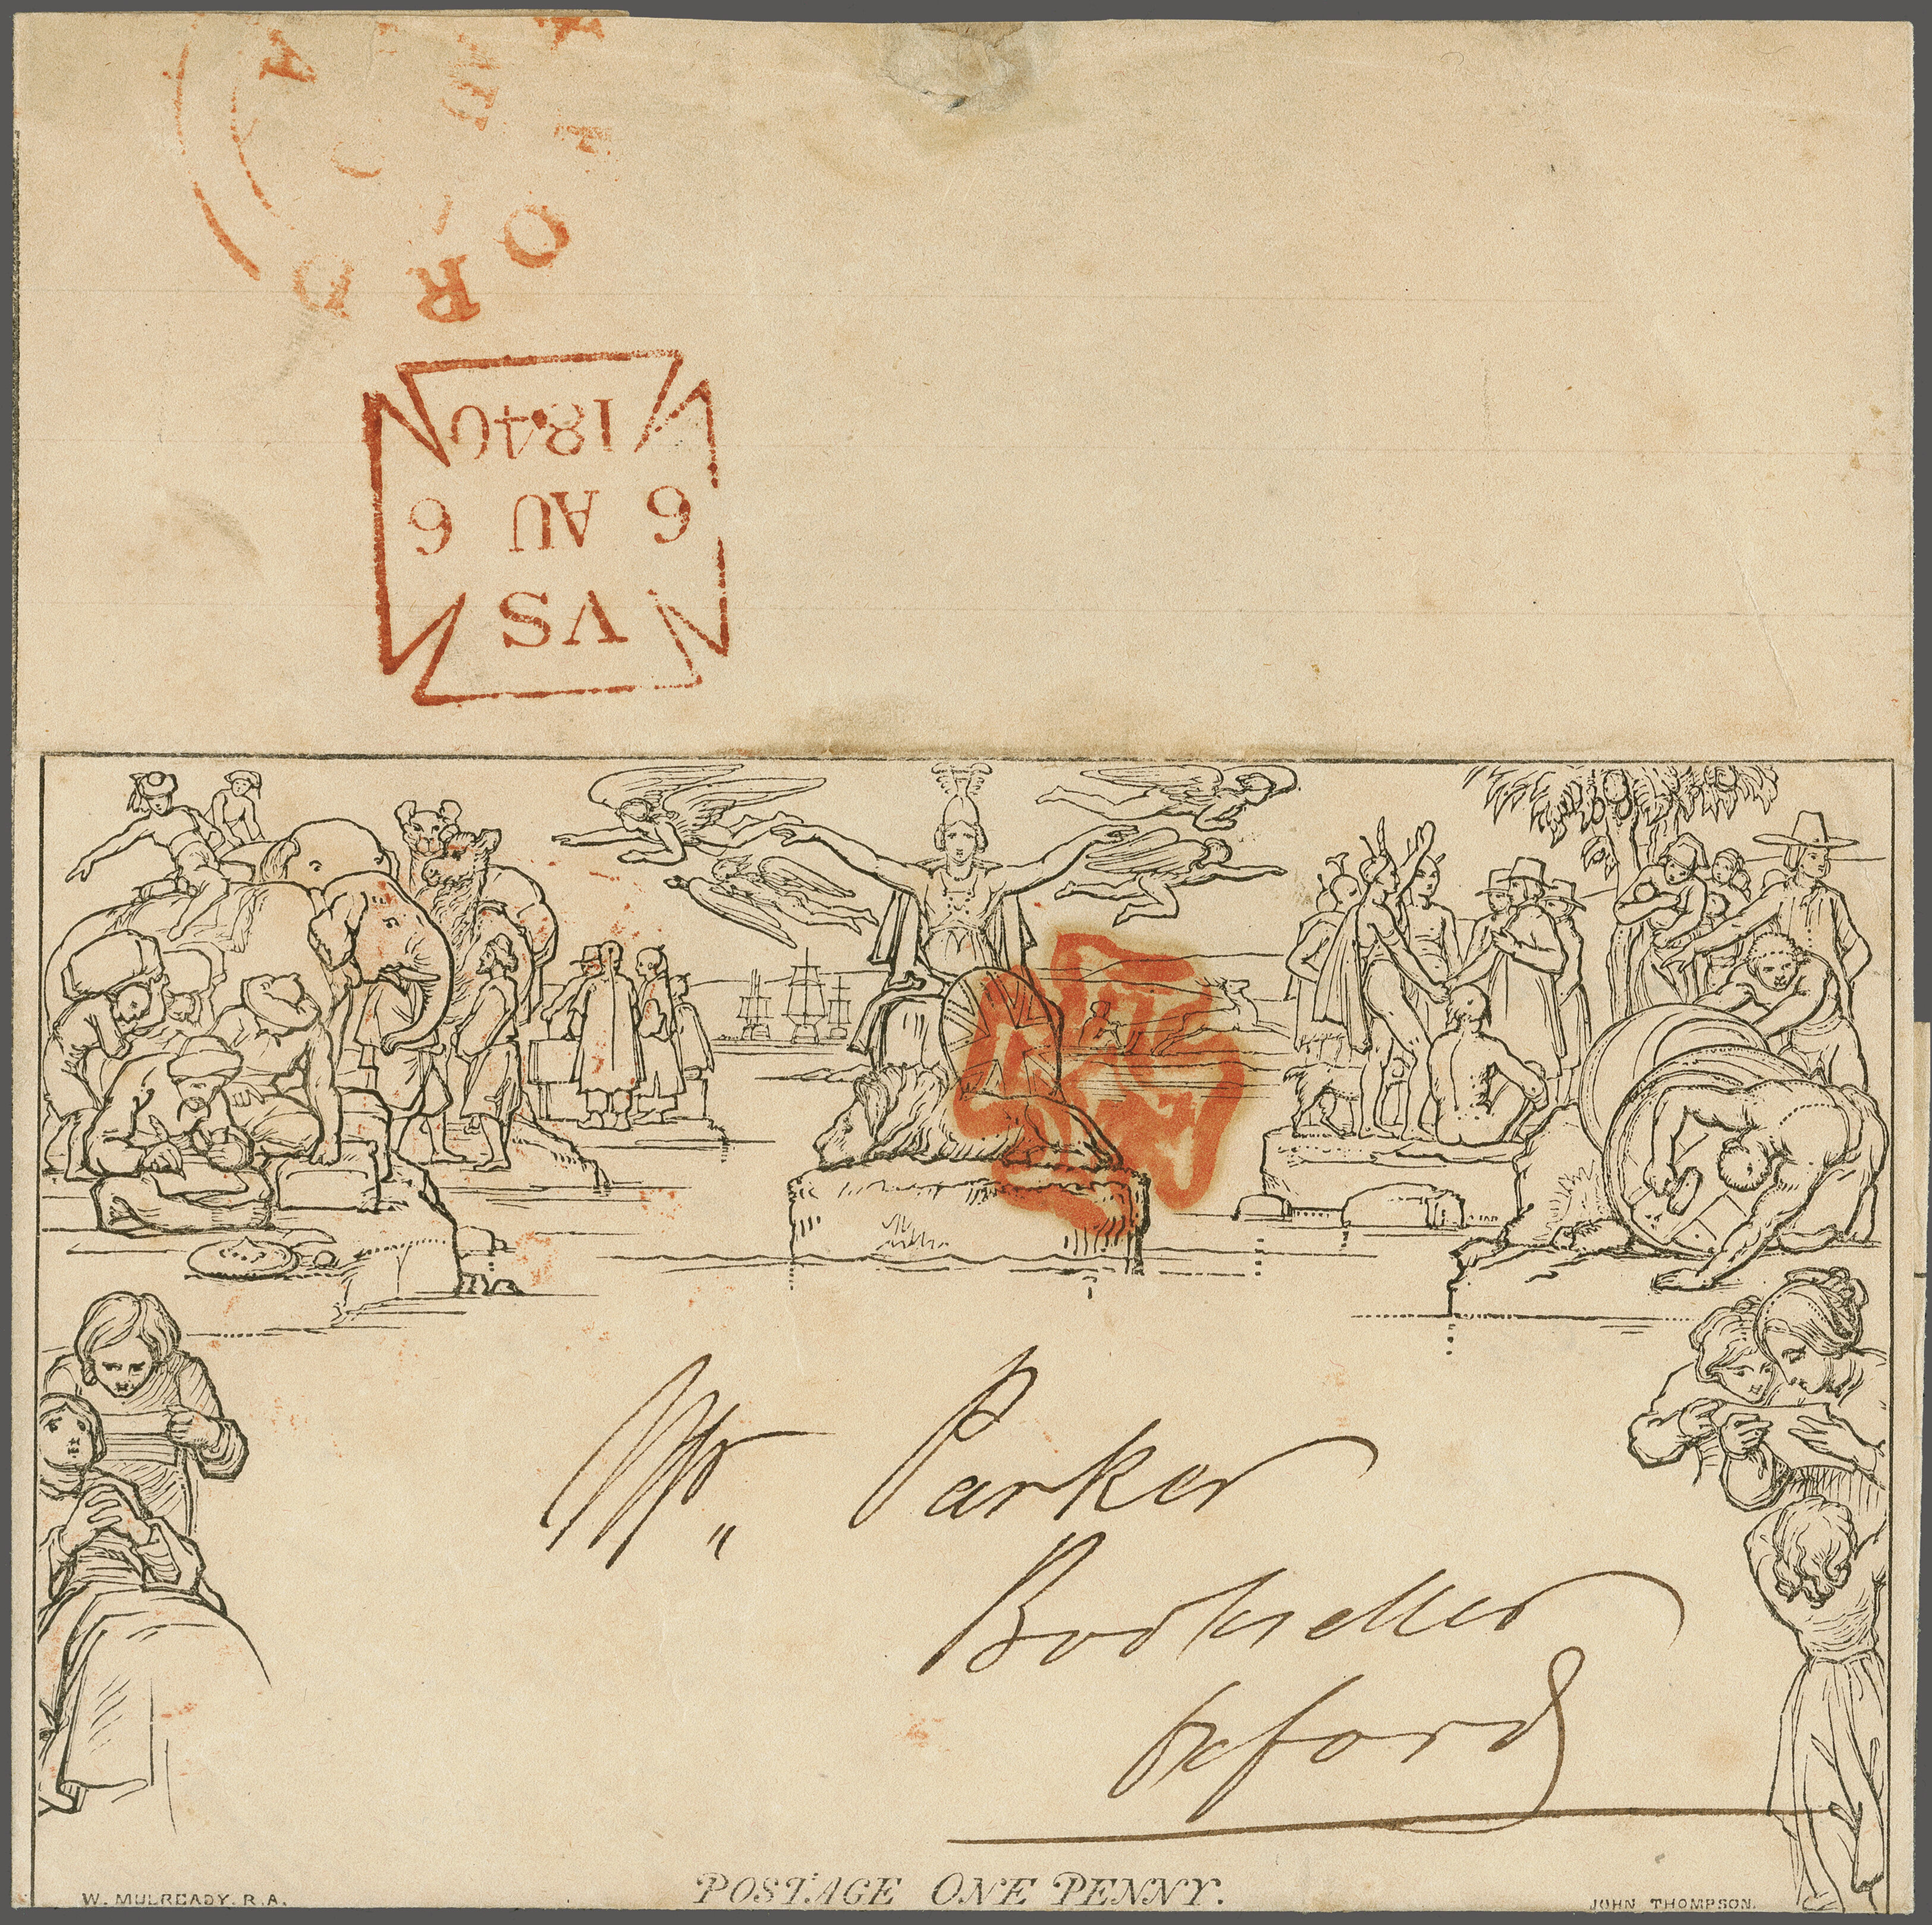 OXFORD
AU
A
VS
6 AU 6
1840
Mr Parker
Bookseller
Oxford
POSTAGE ONE PENNY.
W. MULREADY. R.A.
JOHN THOMPSON.